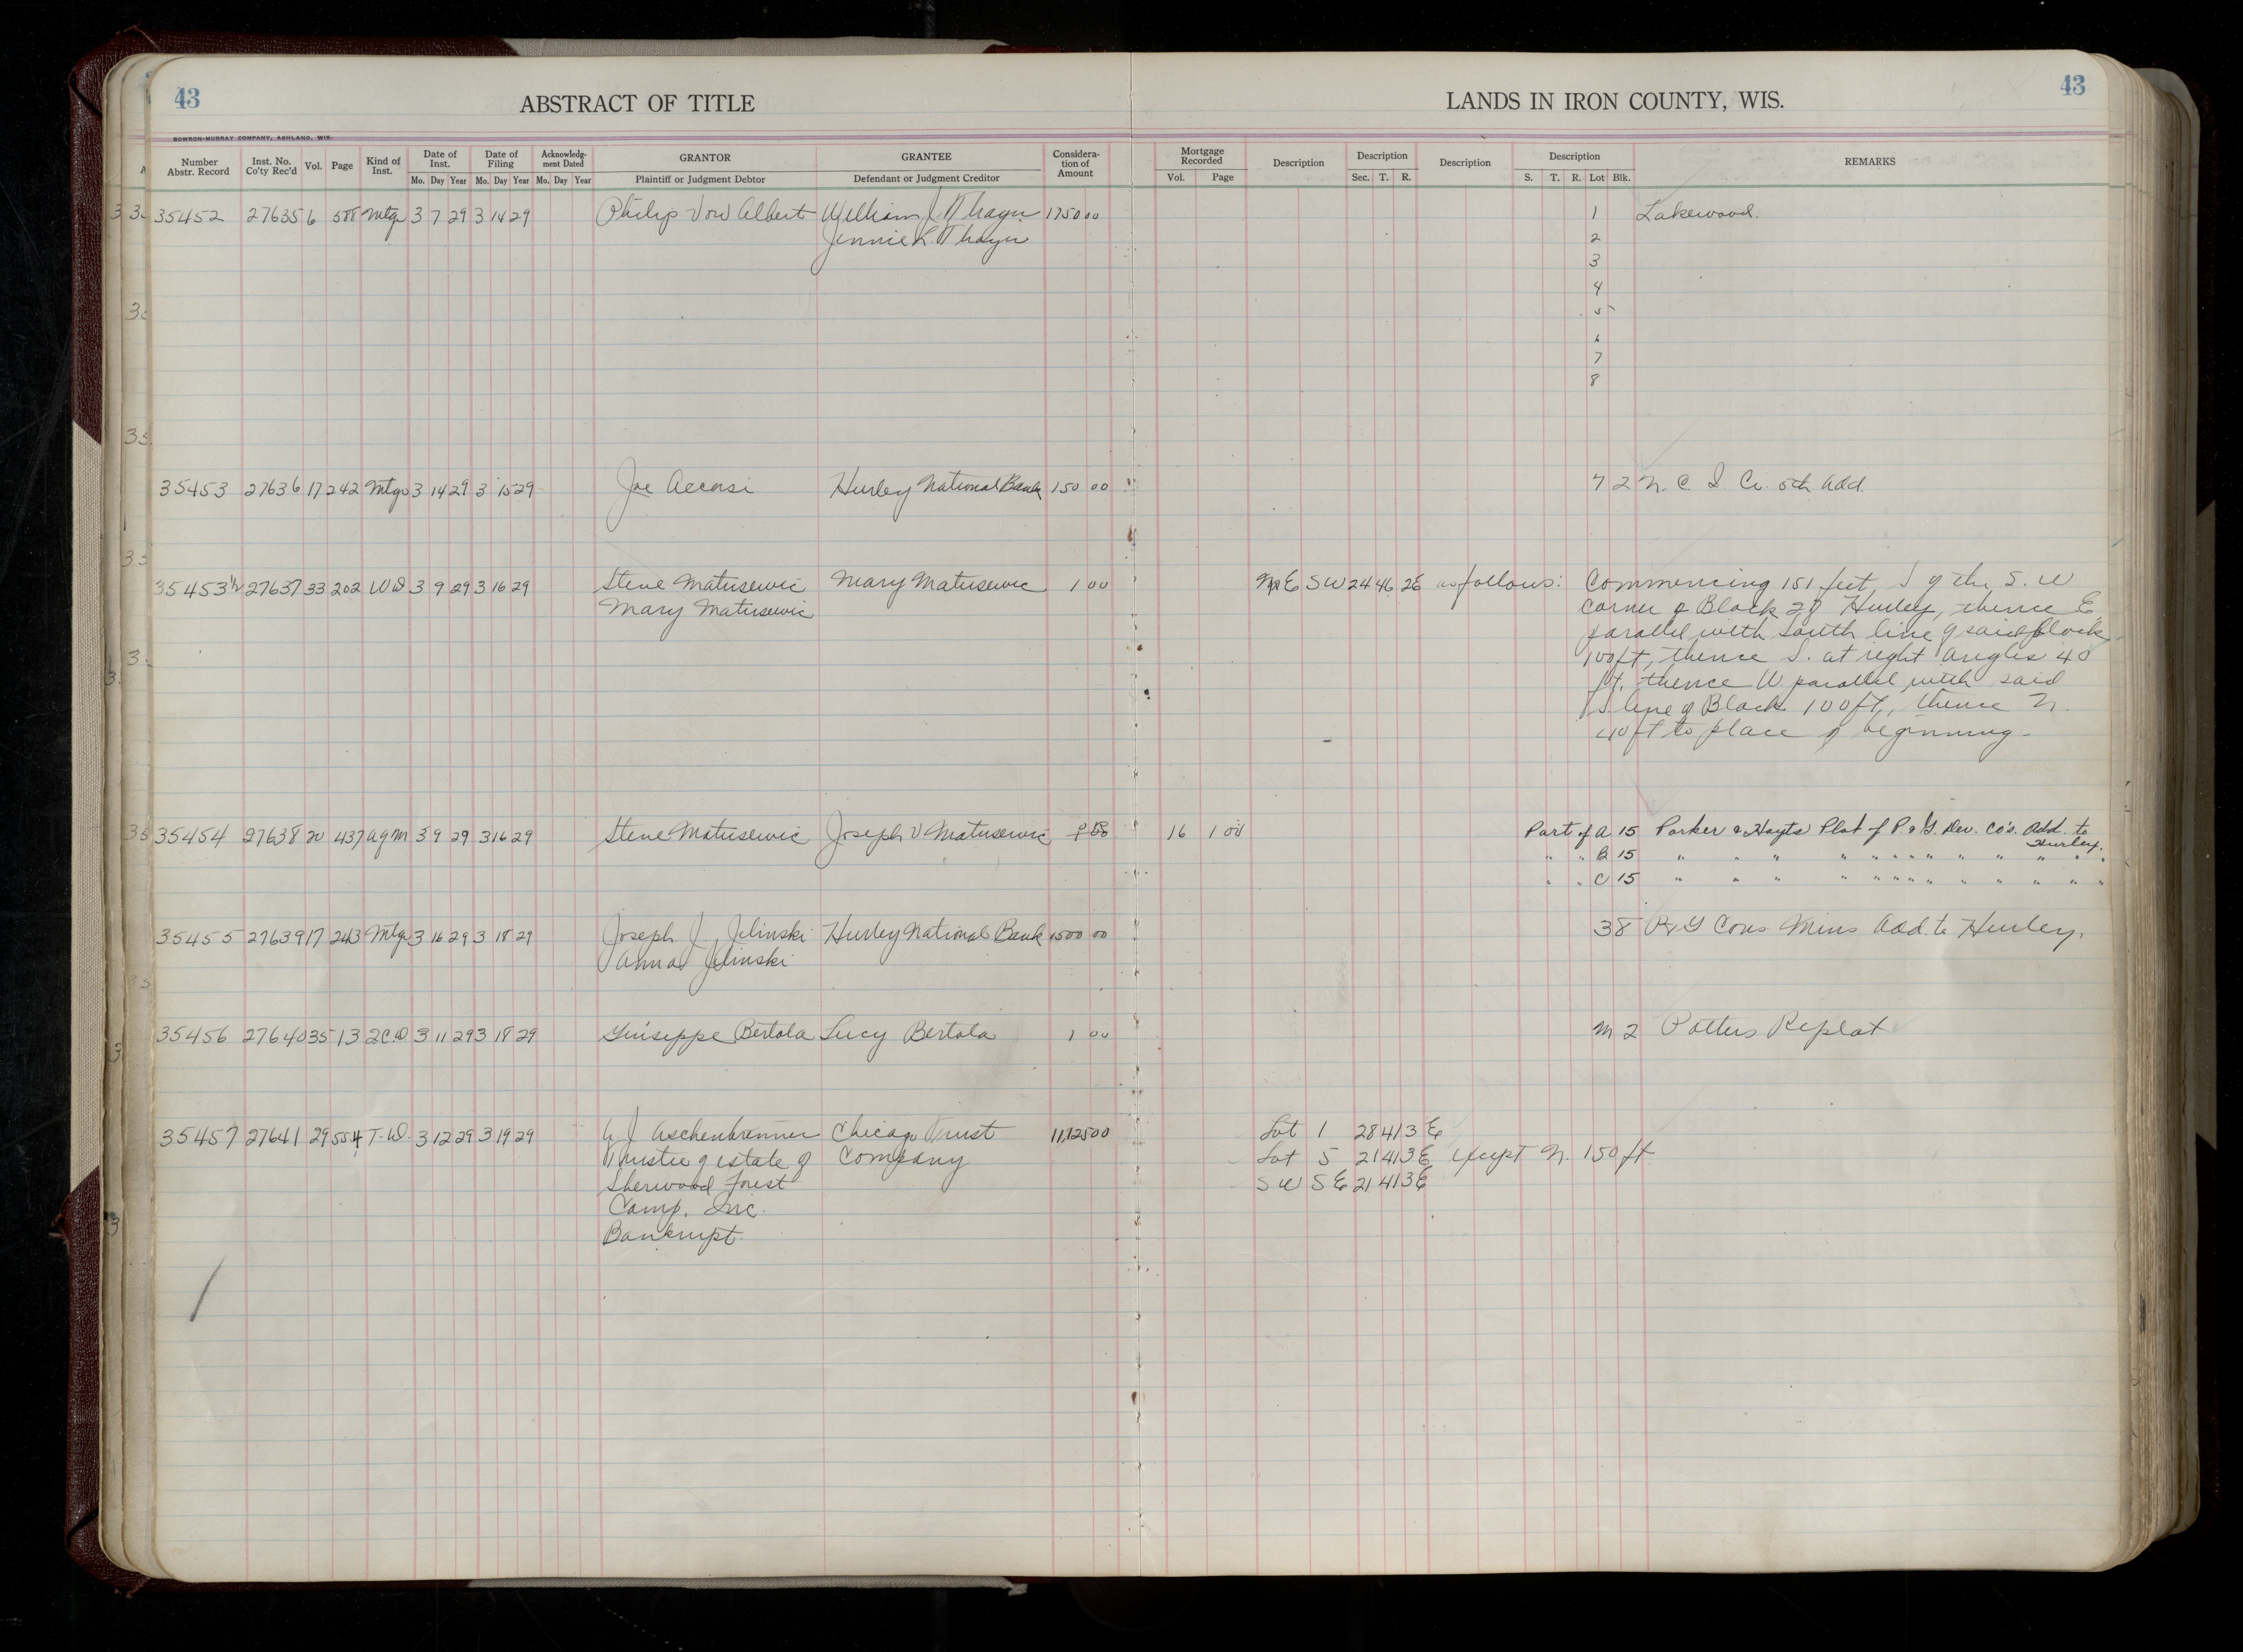 43 ABSTRACT OF TITLE LANDS IN IRON COUNTY, WIS. 43
BOWRON-MURRAY COMPANY, ASHLAND, WIS.
Number Abstr. Record Inst. No. Co'ty Rec'd Vol. Page Kind of Inst. Date of Inst. Mo. Day Year Date of Filing Mo. Day Year Acknowledgment Dated Mo. Day Year GRANTOR Plaintiff or Judgment Debtor GRANTEE Defendant or Judgment Creditor Consideration of Amount Mortgage Recorded Vol. Page Description Description Sec. T. R. Description Description S. T. R. Lot Blk. REMARKS
35452 27635 6 588 Mtge 3 7 29 3 14 29 Philip Von Albert William J Thayer 1750 00 1 Lakewood.
Jennie L. Thayer 2
3
4
5
6
7
8
35453 27636 17 242 Mtge 3 14 29 3 15 29 Joe Accasi Hurley National Bank 150 00 7 2 N. C. I Co. 5th Add.
35453½ 27637 33 202 WD 3 9 29 3 16 29 Steve Matusewic Mary Matusewic 1 00 NE SW 24 46 2E as follows: Commencing 151 feet S of the S. W
Mary Matusewic corner of Block 27 Hurley, thence E
parallel with south line of said block
100ft, thence S. at right angles 40
ft. thence W parallel with said
S line of Block 100ft, thence N.
40ft to place of beginning.
35454 27638 20 437 Agm 3 9 29 3 16 29 Steve Matusewic Joseph V Matusewic 16 100 Part of A 15 Parker & Hayts Plat of P & G. Dev. Co's. Add. to
Hurley.
" " B 15 " " " " " " " " " " " " "
" " C 15 " " " " " " " " " " " " "
35455 27639 17 243 Mtge 3 16 29 3 18 29 Joseph J. Jelinski Hurley National Bank 1500 00 38 P & G Cons Mins Add. to Hurley.
Anna Jelinski
35456 27640 35 13 2CD 3 11 29 3 18 29 Guiseppe Bertola Lucy Bertola 1 00 M 2 Potters Replat
35457 27641 29 554 T. D. 3 12 29 3 19 29 A J Aschenbrenner Chicago Trust 11,125 00 Lot 1 28 41 3 E
Trustee of estate of Company Lot 5 21 41 3 E except N. 150 ft
Sherwood Forest SW SE 21 41 3 E
Camp, Inc.
Bankrupt